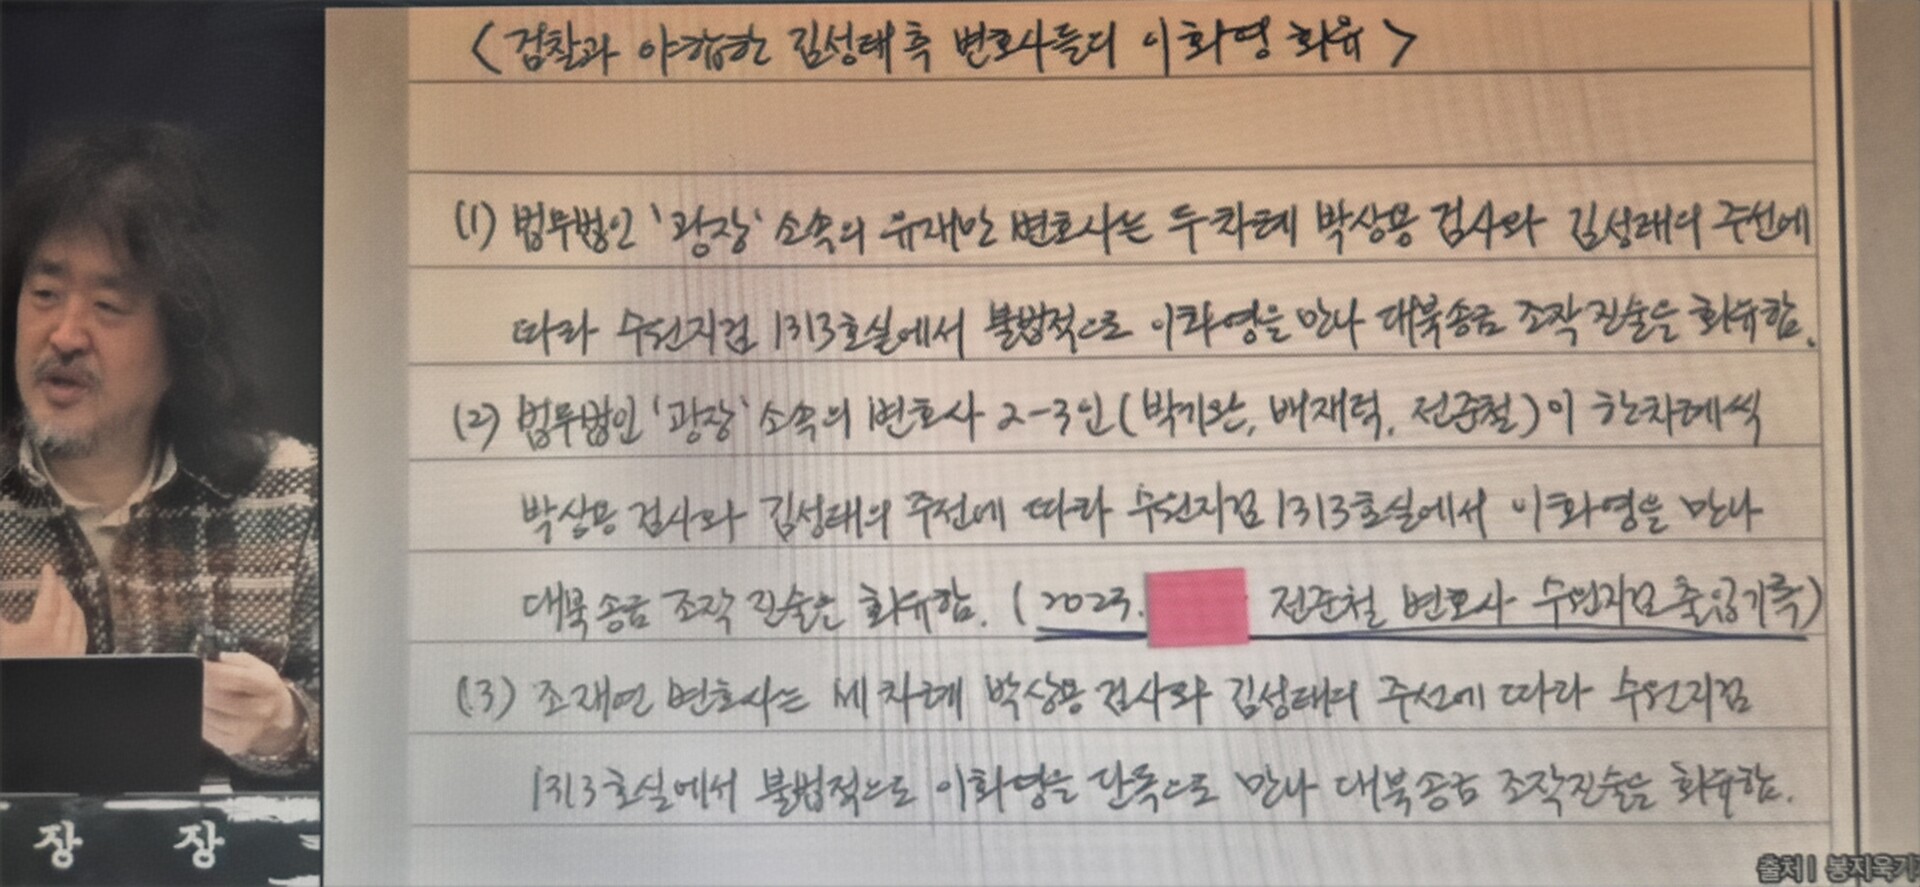 <검찰과 야합한 김성태측 변호사들의 이화영 회유>
(1) 법무법인 '광장' 소속의 유재만 변호사는 두차례 박상용 검사와 김성태의 주선에
따라 수원지검 1313호실에서 불법적으로 이화영을 만나 대북송금 조작진술을 회유함.
(2) 법무법인 '광장' 소속의 변호사 2-3인(박기완, 배재덕, 전준철)이 한차례씩
박상용 검사와 김성태의 주선에 따라 수원지검 1313호실에서 이화영을 만나
대북송금 조작 진술을 회유함. (2023. 전준철 변호사 수원지검 출입기록)
(3) 조재연 변호사는 세차례 박상용 검사와 김성태의 주선에 따라 수원지검
1313호실에서 불법적으로 이화영을 단독으로 만나 대북송금 조작진술을 회유함.
장 장
출처 | 봉지욱기